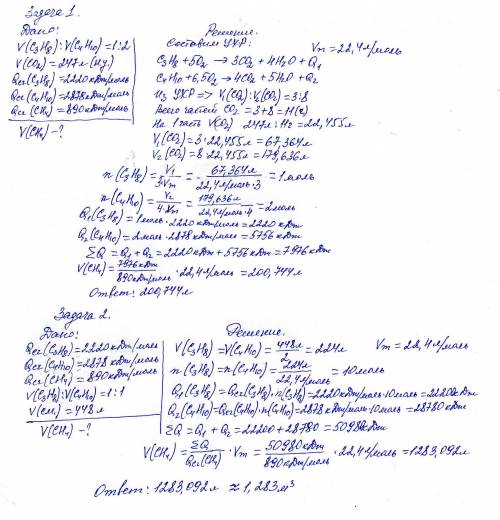 Задача 1.
Дано:
V(C3H8):V(C4H10)=1:2
V(CO2)=247л (н.у.)
Qсг(C3H8)=2220кДж/моль
Qсг(C4H10)=2878кДж/моль
Qсг(CH4)=890кДж/моль
V(CH4)-?
Решение.
Составим УХР: Vm=22,4л/моль
C3H8+5O2→3CO2+4H2O+Q1
C4H10+6,5O2→4CO2+5H2O+Q2
Из УХР => V1(CO2):V2(CO2)=3:8
Всего частей CO2=3+8=11(ч)
На 1 часть V(CO2) 247л:11ч=22,455л
V1(CO2)=3·22,455л=67,364л
V2(CO2)=8·22,455л=179,636л
n(C3H8)=V1/3·Vm=67,364л/22,4л/моль·3=1моль
n(C4H10)=V2/4·Vm=179,636л/22,4л/моль·4=2моль
Q1(C3H8)=1моль·2220кДж/моль=2220кДж
Q2(C4H10)=2моль·2878кДж/моль=5756кДж
ΣQ=Q1+Q2=2220кДж+5756кДж=7976кДж
V(CH4)=7976кДж/890кДж/моль·22,4л/моль=200,744л
Ответ: 200,744л
Задача 2.
Дано:
Qсг(C3H8)=2220кДж/моль
Qсг(C4H10)=2878кДж/моль
Qсг(CH4)=890кДж/моль
V(C3H8):V(C4H10)=1:1
V(см)=448л
V(CH4)-?
Решение.
V(C3H8)=V(C4H10)=448л/2=224л Vm=22,4л/моль
n(C3H8)=n(C4H10)=224л/22,4л/моль=10моль
Q1(C3H8)=Qсг(C3H8)·n(C3H8)=2220кДж/моль·10моль=22200кДж
Q2(C4H10)=Qсг(C4H10)·n(C4H10)=2878кДж/моль·10моль=28780кДж
ΣQ=Q1+Q2=22200+28780=50980кДж
V(CH4)=ΣQ/Qсг(CH4)·Vm=50980кДж/890кДж/моль·22,4л/моль=1283,092л
Ответ: 1283,092л≈1,283м³